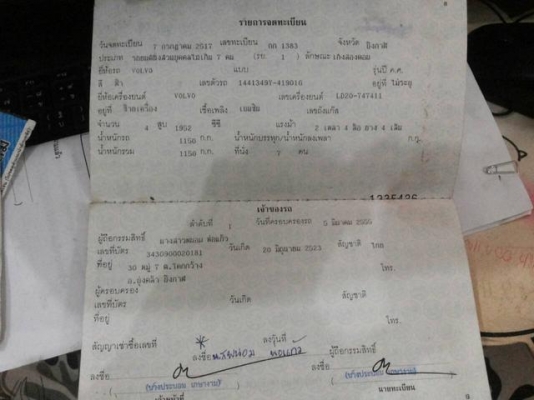 รายการจดทะเบียน
วันจดทะเบียน 7 กรกฎาคม 2517 เลขทะเบียน กก 1383 จังหวัด
ประเภท รถยนต์นั่งส่วนบุคคลไม่เกิน 7 คน (รย. 1 ) ลักษณะ เก๋งสองตอน
ยี่ห้อรถ VOLVO แบบ รุ่นปี ค.ศ.
สี ฟ้า เลขตัวรถ 14413497-419016 อยู่ที่ ไม่ระบุ
ยี่ห้อเครื่องยนต์ VOLVO เลขเครื่องยนต์ LD20-747411
อยู่ที่ เชื้อเพลิง เลขถังแก๊ส
จำนวน 4 สูบ 1952 ซีซี แรงม้า 2 เพลา 4 ล้อ ยาง 4 เส้น
น้ำหนักรถ 1150 ก.ก. น้ำหนักบรรทุก/น้ำหนักลงเพลา ก.ก.
น้ำหนักรวม 1150 ก.ก. ที่นั่ง คน
เจ้าของรถ
ลำดับที่ 1 วันที่ครอบครองรถ 5 มีนาคม 2555
ผู้ถือกรรมสิทธิ์ นางสาวพนอม
เลขที่บัตร 3430900020181 วันเกิด 20 มิถุนายน 2523 สัญชาติ ไทย
ที่อยู่ 30 หมู่ 7 ต.โคกกว้าง โทร.
ผู้ครอบครอง
เลขที่บัตร วันเกิด สัญชาติ
ที่อยู่ โทร.
สัญญาเช่าซื้อเลขที่ ลงวันที่
ลงชื่อ ผู้ถือกรรมสิทธิ์
ลงชื่อ ลงชื่อ
นายทะเบียน